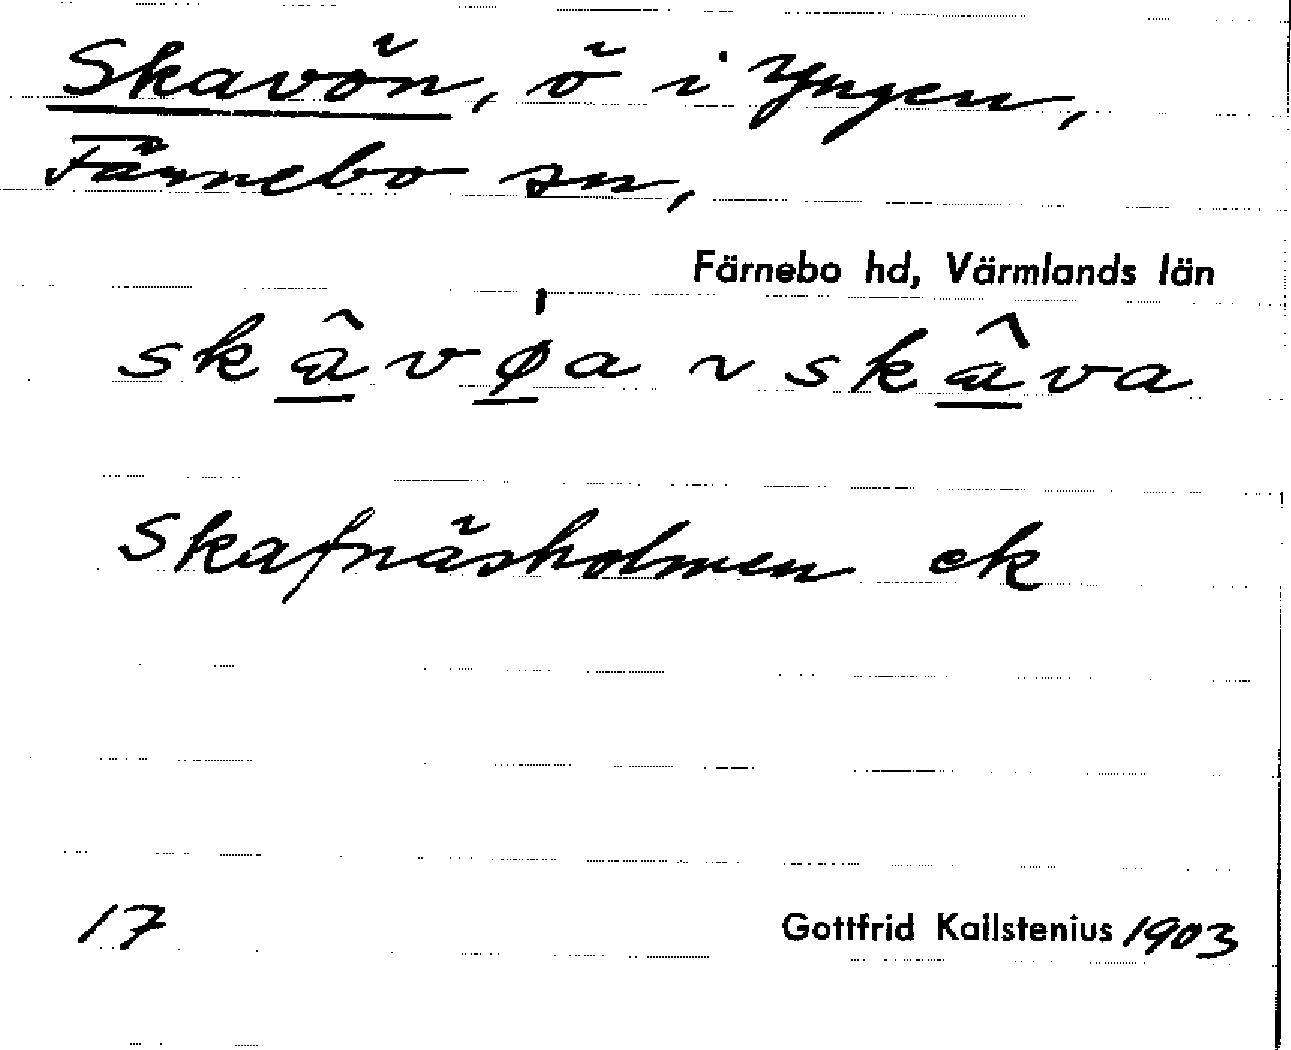 Skavön, ö i Yngen,
Färnebo sn,
Färnebo hd, Värmlands län
skâvø̍a ~ skâva
Skafnäsholmen ek
17
Gottfrid Kallstenius 1903